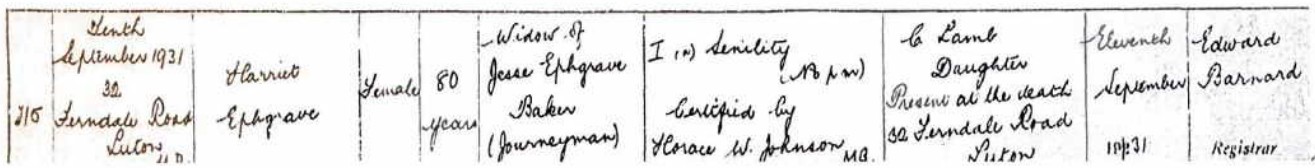 315
Tenth
September 1931
32
Ferndale Road
Luton
U.D.
Harriet
Ephgrave
Female
80
years
Widow of
Jesse Ephgrave
Baker
(Journeyman)
I (a) Senility
(No p m)
Certified by
Horace W. Johnson MB.
C Lamb
Daughter
Present at the death
32 Ferndale Road
Luton
Eleventh
September
1931
Edward
Barnard
Registrar